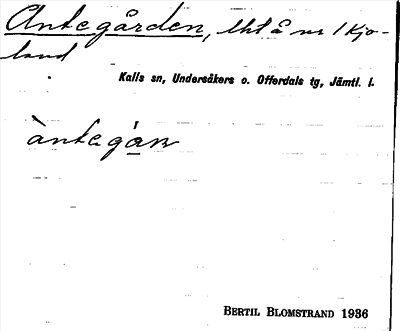 Antegården, lht å nr 1 Kjo-
land
Kalls sn, Undersåkers o. Offerdals tg, Jämtl. l.
àntegá̱ṇ
BERTIL BLOMSTRAND 1936